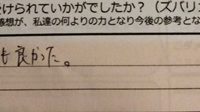 受けられていかがでしたか？（ズバリ
感想が、私達の何よりの力となり今後の参考とな
も良かった。